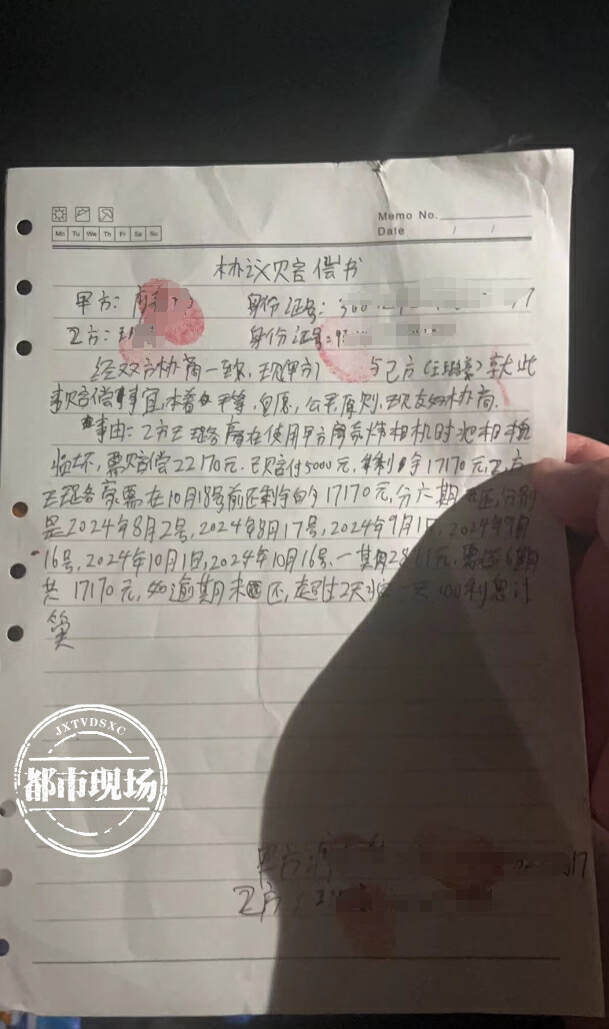 Memo No.
Mo Tu We Th Fr Sa Su
Date / /
协议赔偿书
甲方: 身份证号: 7
乙方: 身份证号:
经双方协商一致, 现甲方 与已方 就此
事赔偿事宜, 本着 平等, 自愿, 公平原则, 现友好协商.
事由: 乙方 在使用甲方 相机时把相机
损坏, 需赔偿22170元. 已赔付5000元, 剩余17170元, 乙方
需在10月18号前还剩余的17170元, 分六期 还, 分别
是2024年8月2号, 2024年8月17号, 2024年9月1号, 2024年9月
16号, 2024年10月1日, 2024年10月16号. 一期 元, 需还6期
共17170元, 如逾期未还, 超过2天 一天 100利息计
算
JXTVDSXC
都市现场
甲方: 17
乙方: